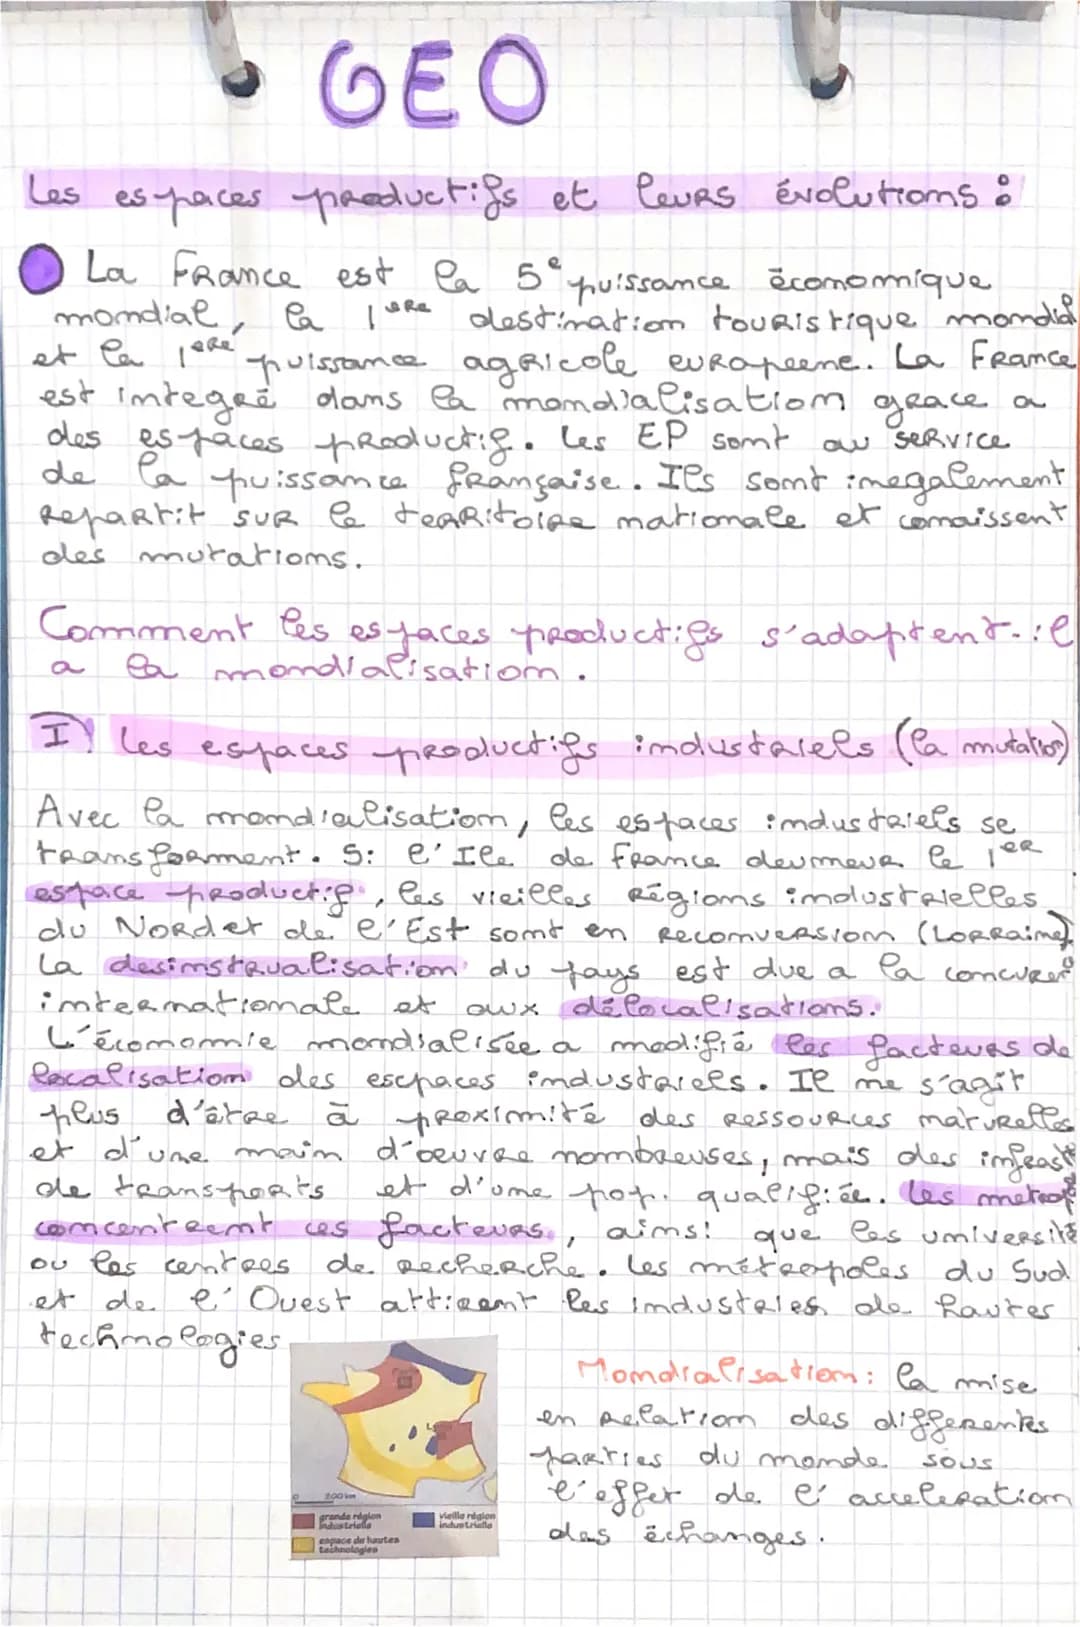 GEO
Les espaces productifs et leurs évolutions :
La France est la 5e puissance économique
mondial, la 1ere destination touristique mondial
et la 1ere puissance agricole européene. La France
est integré dans la mondialisation grace a
des espaces productif. Les EP sont au service
de la puissance française. Ils sont inegalement
repartit sur le territoire nationale et connaissent
des mutations.
Comment les espaces productifs s'adaptent-il
a la mondialisation.
I) Les espaces productifs industriels (la mutation)
Avec la mondialisation, les espaces industriels se
transforment. Si l'Ile de France deumeur le 1er
espace productif, les vieilles régions industrielles
du Nord et de l'Est sont en reconversion (Lorraine).
La desinstrualisation du pays est due a la concuren
internationale et aux délocalisations.
L'économie mondialisée a modifié les facteurs de
localisation des escpaces industriels. Il ne s'agit
plus d'être à proximité des ressources naturelles
et d'une main d'œuvre nombreuses, mais des infrast
de transports et d'une pop. qualifiée. Les metrop
concentrent ces facteurs, ainsi que les université
ou les centres de recherche. Les métropoles du Sud
et de l'Ouest attirent les industries de hautes
technologies
Mondialisation : la mise
en relation des differentes
parties du monde sous
l'effet de l'acceleration
des échanges.
0 200 km
grande région industrielle
vieille région industrielle
espace de hautes technologies